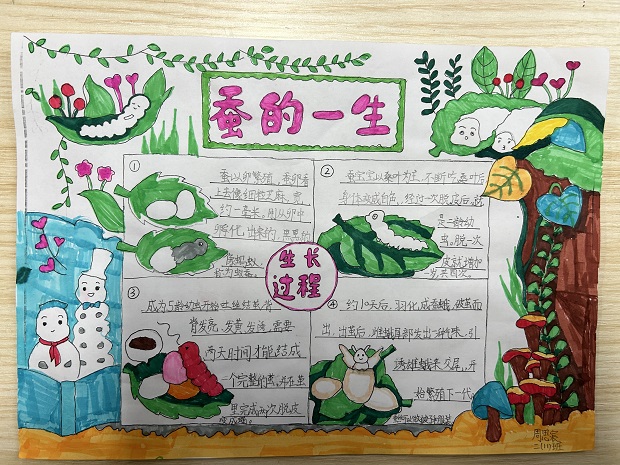 蚕的一生
①
蚕以卵繁殖，蚕卵看
上去像细粒芝麻，宽
约一毫米，刚从卵中
孵化出来的，黑黑的
像蚂蚁，
称为蚁蚕。
②
蚕宝宝以桑叶为生，不断吃桑叶后
身体变成白色，经过一次脱皮后，就
是二龄幼
虫。脱一次
皮就增加
一岁，共四次。
生长
过程
③
成为五龄幼虫开始吐丝结茧
背发亮，发黄发连，需要
两天时间才能结成
一个完整的茧，并在茧
里完成两次脱皮
④
约10天后，羽化成蚕蛾，破茧而
出，出茧后，雌蛾尾部发出一种味，引
诱雄蛾来交尾，开
始繁殖下一代
周思宸
二(1)班